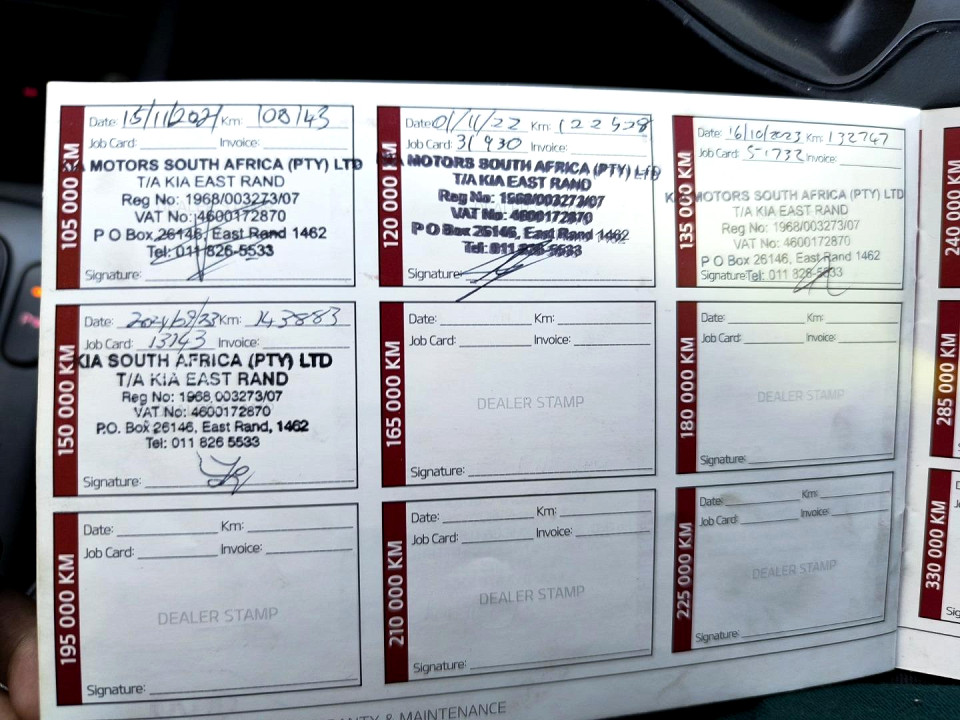 105 000 KM
Date: 15/11/2021 Km: 108143
Job Card: Invoice:
KIA MOTORS SOUTH AFRICA (PTY) LTD
T/A KIA EAST RAND
Reg No: 1968/003273/07
VAT No: 4600172870
P O Box 26146, East Rand 1462
Tel: 011 826-5533
Signature:
120 000 KM
Date: 01/11/22 Km: 122528
Job Card: 31930 Invoice:
MOTORS SOUTH AFRICA (PTY) LTD
T/A KIA EAST RAND
Reg No: 1968/003273/07
VAT No: 4600172870
P O Box 26146, East Rand 1462
Tel: 011 826-5533
Signature:
135 000 KM
Date: 16/10/2023 Km: 132747
Job Card: 51732 Invoice:
KIA MOTORS SOUTH AFRICA (PTY) LTD
T/A KIA EAST RAND
Reg No: 1968/003273/07
VAT No: 4600172870
P O Box 26146, East Rand 1462
Signature: Tel: 011 826-5533
240 000 KM
150 000 KM
Date: Km: 143883
Job Card: 13143 Invoice:
KIA SOUTH AFRICA (PTY) LTD
T/A KIA EAST RAND
Reg No: 1968/003273/07
VAT No: 4600172870
P.O. Box 26146, East Rand, 1462
Tel: 011 826 5533
Signature:
165 000 KM
Date: Km:
Job Card: Invoice:
DEALER STAMP
Signature:
180 000 KM
Date: Km:
Job Card: Invoice:
DEALER STAMP
Signature:
285 000 KM
195 000 KM
Date: Km:
Job Card: Invoice:
DEALER STAMP
Signature:
210 000 KM
Date: Km:
Job Card: Invoice:
DEALER STAMP
Signature:
225 000 KM
Date: Km:
Job Card: Invoice:
DEALER STAMP
Signature:
330 000 KM
& MAINTENANCE